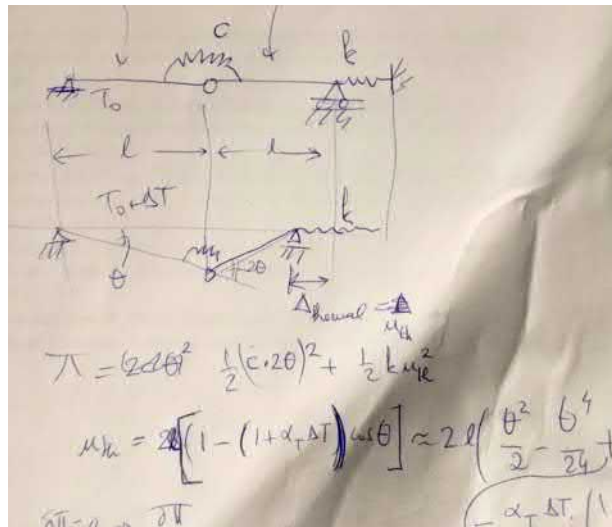 C
k
T₀
l l
T₀+ΔT
k
θ
2θ
Δthermal =
uth
π = (2cθ)² ½(c·2θ)² + ½ k u²
uth = 2l[(1 - (1+α_T ΔT) cosθ] ≈ 2l(θ²/2 - θ⁴/24 +
α_T ΔT